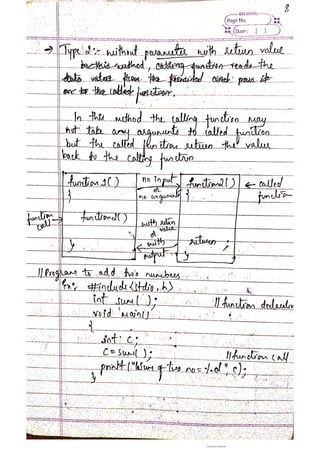 8
Page No.
Date : | |
→ Type 2:- without parameter with return value
In this method, calling function reads the
data value from the provided and pass it
on to the called function.
In this method the calling function may
not take any arguments to called function
but the called function return the value
back to the calling function
function1( ) no input function2( ) ← called
{ or no argument { function
function call → function2( )
with return value
& with output
return ;
} }
// Program to add two numbers
Ex:- #include<stdio.h>
int sum( ); // function declaration
void main()
{
int c;
c = sum( ); // function call
printf ("Sum of two no = %d", c);
}